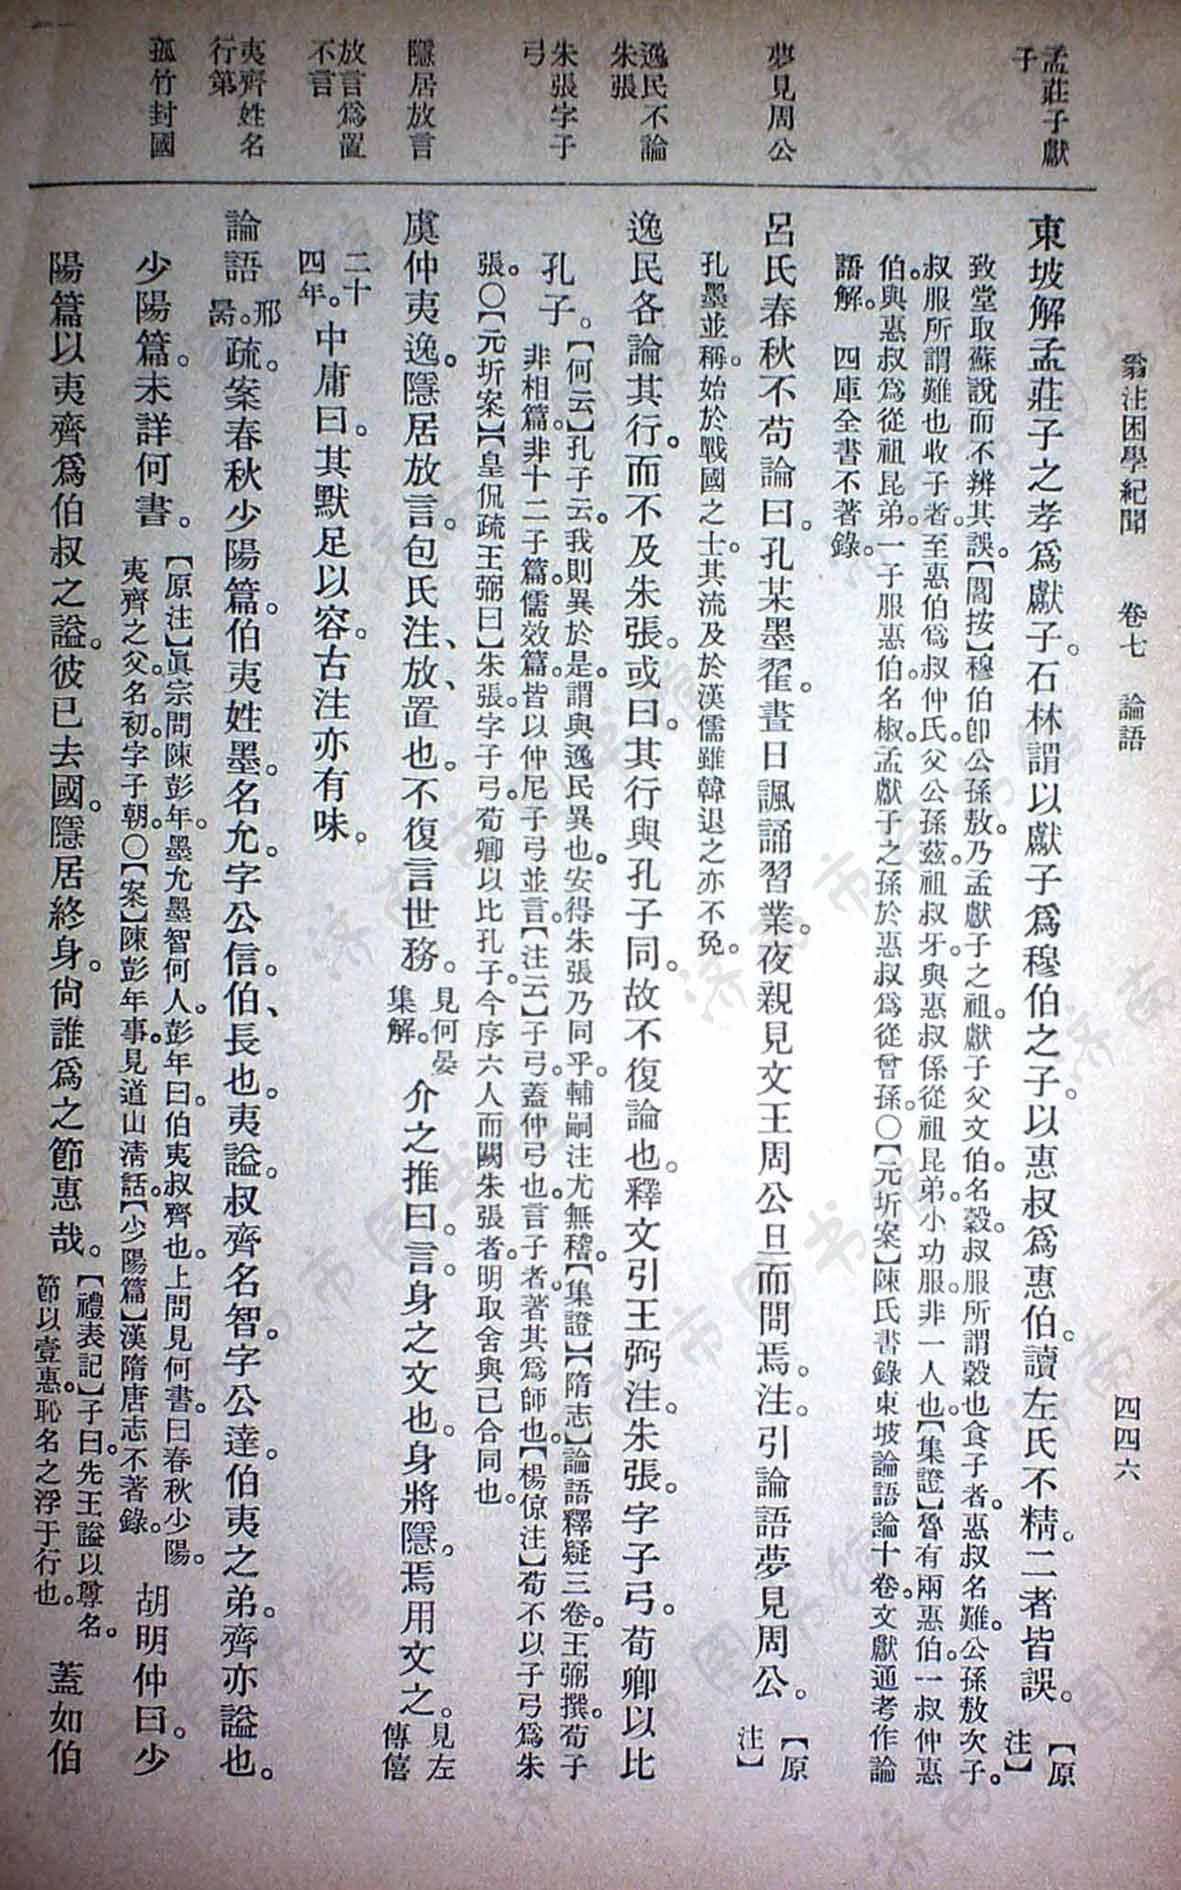 翁注困學紀聞　卷七　論語　四四六
孟莊子獻
子
夢見周公
逸民不論
朱張
朱張字子
弓
隱居放言
放言爲置
不言
夷齊姓名
行第
孤竹封國
東坡解孟莊子之孝爲獻子。石林謂以獻子爲穆伯之子。以惠叔爲惠伯。讀左氏不精。二者皆誤。【原
注】
致堂取蘇說而不辨其誤。【閻按】穆伯卽公孫敖。乃孟獻子之祖。獻子父文伯。名穀。叔服所謂穀也食子者。惠叔名難。公孫敖次子。
叔服所謂難也收子者。至惠伯爲叔仲氏。父公孫茲。祖叔牙。與惠叔係從祖昆弟。小功服。非一人也。【集證】魯有兩惠伯。一叔仲惠
伯。與惠叔爲從祖昆弟。一子服惠伯。名椒。孟獻子之孫。於惠叔爲從曾孫。〇【元圻案】陳氏書錄。東坡論語論十卷。文獻通考作論
語解。四庫全書不著錄。
呂氏春秋不苟論曰。孔某墨翟。晝日諷誦習業。夜親見文王周公旦而問焉。注。引論語夢見周公。【原
注】
孔墨並稱。始於戰國之士。其流及於漢儒。雖韓退之亦不免。
逸民各論其行。而不及朱張。或曰。其行與孔子同。故不復論也。釋文引王弼注。朱張。字子弓。荀卿以比
孔子。【何云】孔子云。我則異於是。謂與逸民異也。安得朱張乃同乎。輔嗣注尤無稽。【集證】【隋志】論語釋疑三卷。王弼撰。荀子
非相篇。非十二子篇。儒效篇。皆以仲尼子弓並言。【注云】子弓。蓋仲弓也。言子者。著其爲師也。【楊倞注】荀不以子弓爲朱
張。〇【元圻案】【皇侃疏王弼曰】朱張。字子弓。荀卿以比孔子。今序六人而闕朱張者。明取舍與己合同也。
虞仲夷逸。隱居放言。包氏注、放、置也。不復言世務。見何晏
集解。介之推曰。言。身之文也。身將隱。焉用文之。見左
傳僖
二十
四年。中庸曰。其默足以容。古注亦有味。
論語邢
昺。疏。案春秋少陽篇。伯夷姓墨。名允。字公信。伯、長也。夷謚。叔齊名智。字公達。伯夷之弟。齊亦謚也。
少陽篇。未詳何書。【原注】眞宗問陳彭年。墨允墨智何人。彭年曰。伯夷叔齊也。上問見何書。曰春秋少陽。
夷齊之父。名初。字子朝。〇【案】陳彭年事。見道山淸話。【少陽篇】漢隋唐志不著錄。胡明仲曰。少
陽篇以夷齊爲伯叔之謚。彼已去國。隱居終身。尙誰爲之節惠哉。【禮表記】子曰。先王謚以尊名。
節以壹惠。恥名之浮于行也。蓋如伯